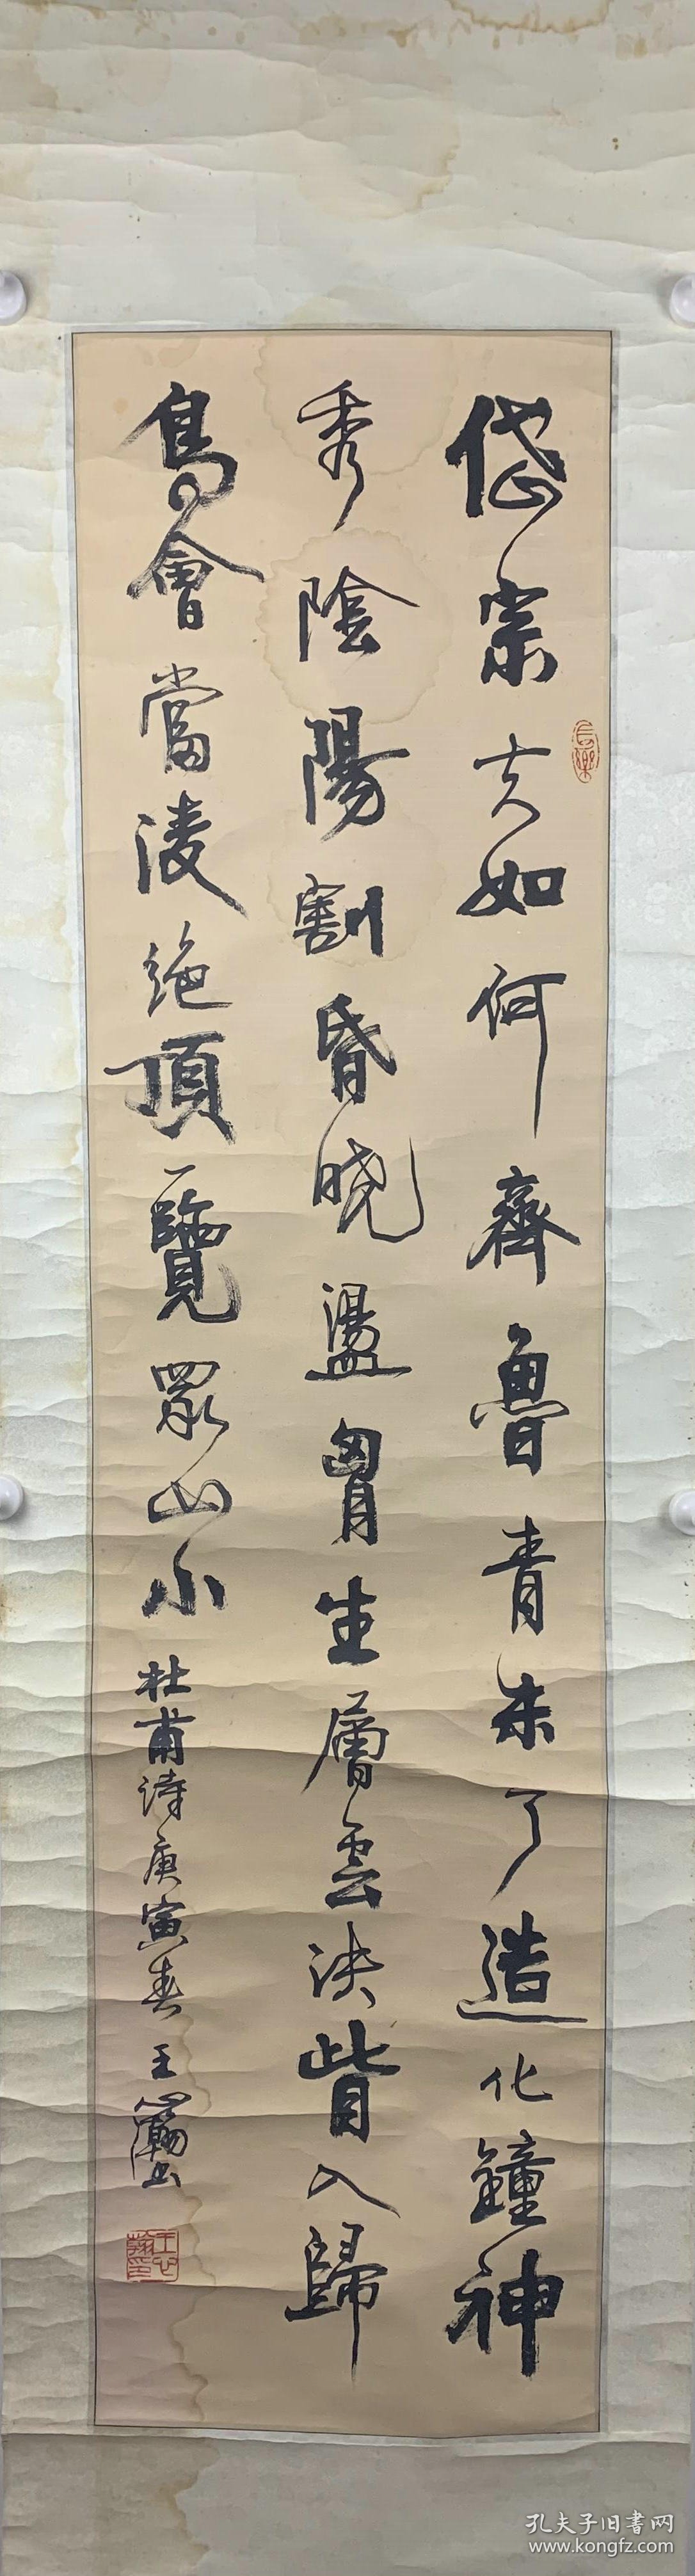 岱宗夫如何齊魯青未了造化鐘神
秀陰陽割昏曉盪胷生層雲決眥入歸
鳥會當凌絕頂一覽眾山小
杜甫詩庚寅春王心瀚書
長樂
王心瀚印
孔夫子旧书网
www.kongfz.com